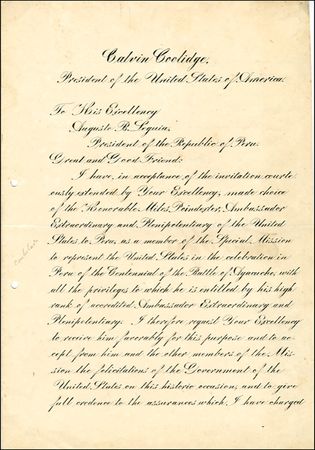 Calvin Coolidge,
President of the United States of America.
To His Excellency
Augusto B. Leguia,
President of the Republic of Peru.
Great and Good Friend:
I have, in acceptance of the invitation courte-
ously extended by Your Excellency, made choice
of the Honorable Miles Poindexter, Ambassador
Extraordinary and Plenipotentiary of the United
States to Peru, as a member of the Special Mission
to represent the United States in the celebration in
Peru of the Centennial of the Battle of Ayaucho, with
all the privileges to which he is entitled by his high
rank of accredited Ambassador Extraordinary and
Plenipotentiary. I therefore request Your Excellency
to receive him favorably for this purpose and to ac-
cept from him and the other members of the Mis-
sion the felicitations of the Government of the
United States on this historic occasion, and to give
full credence to the assurances which I have charged